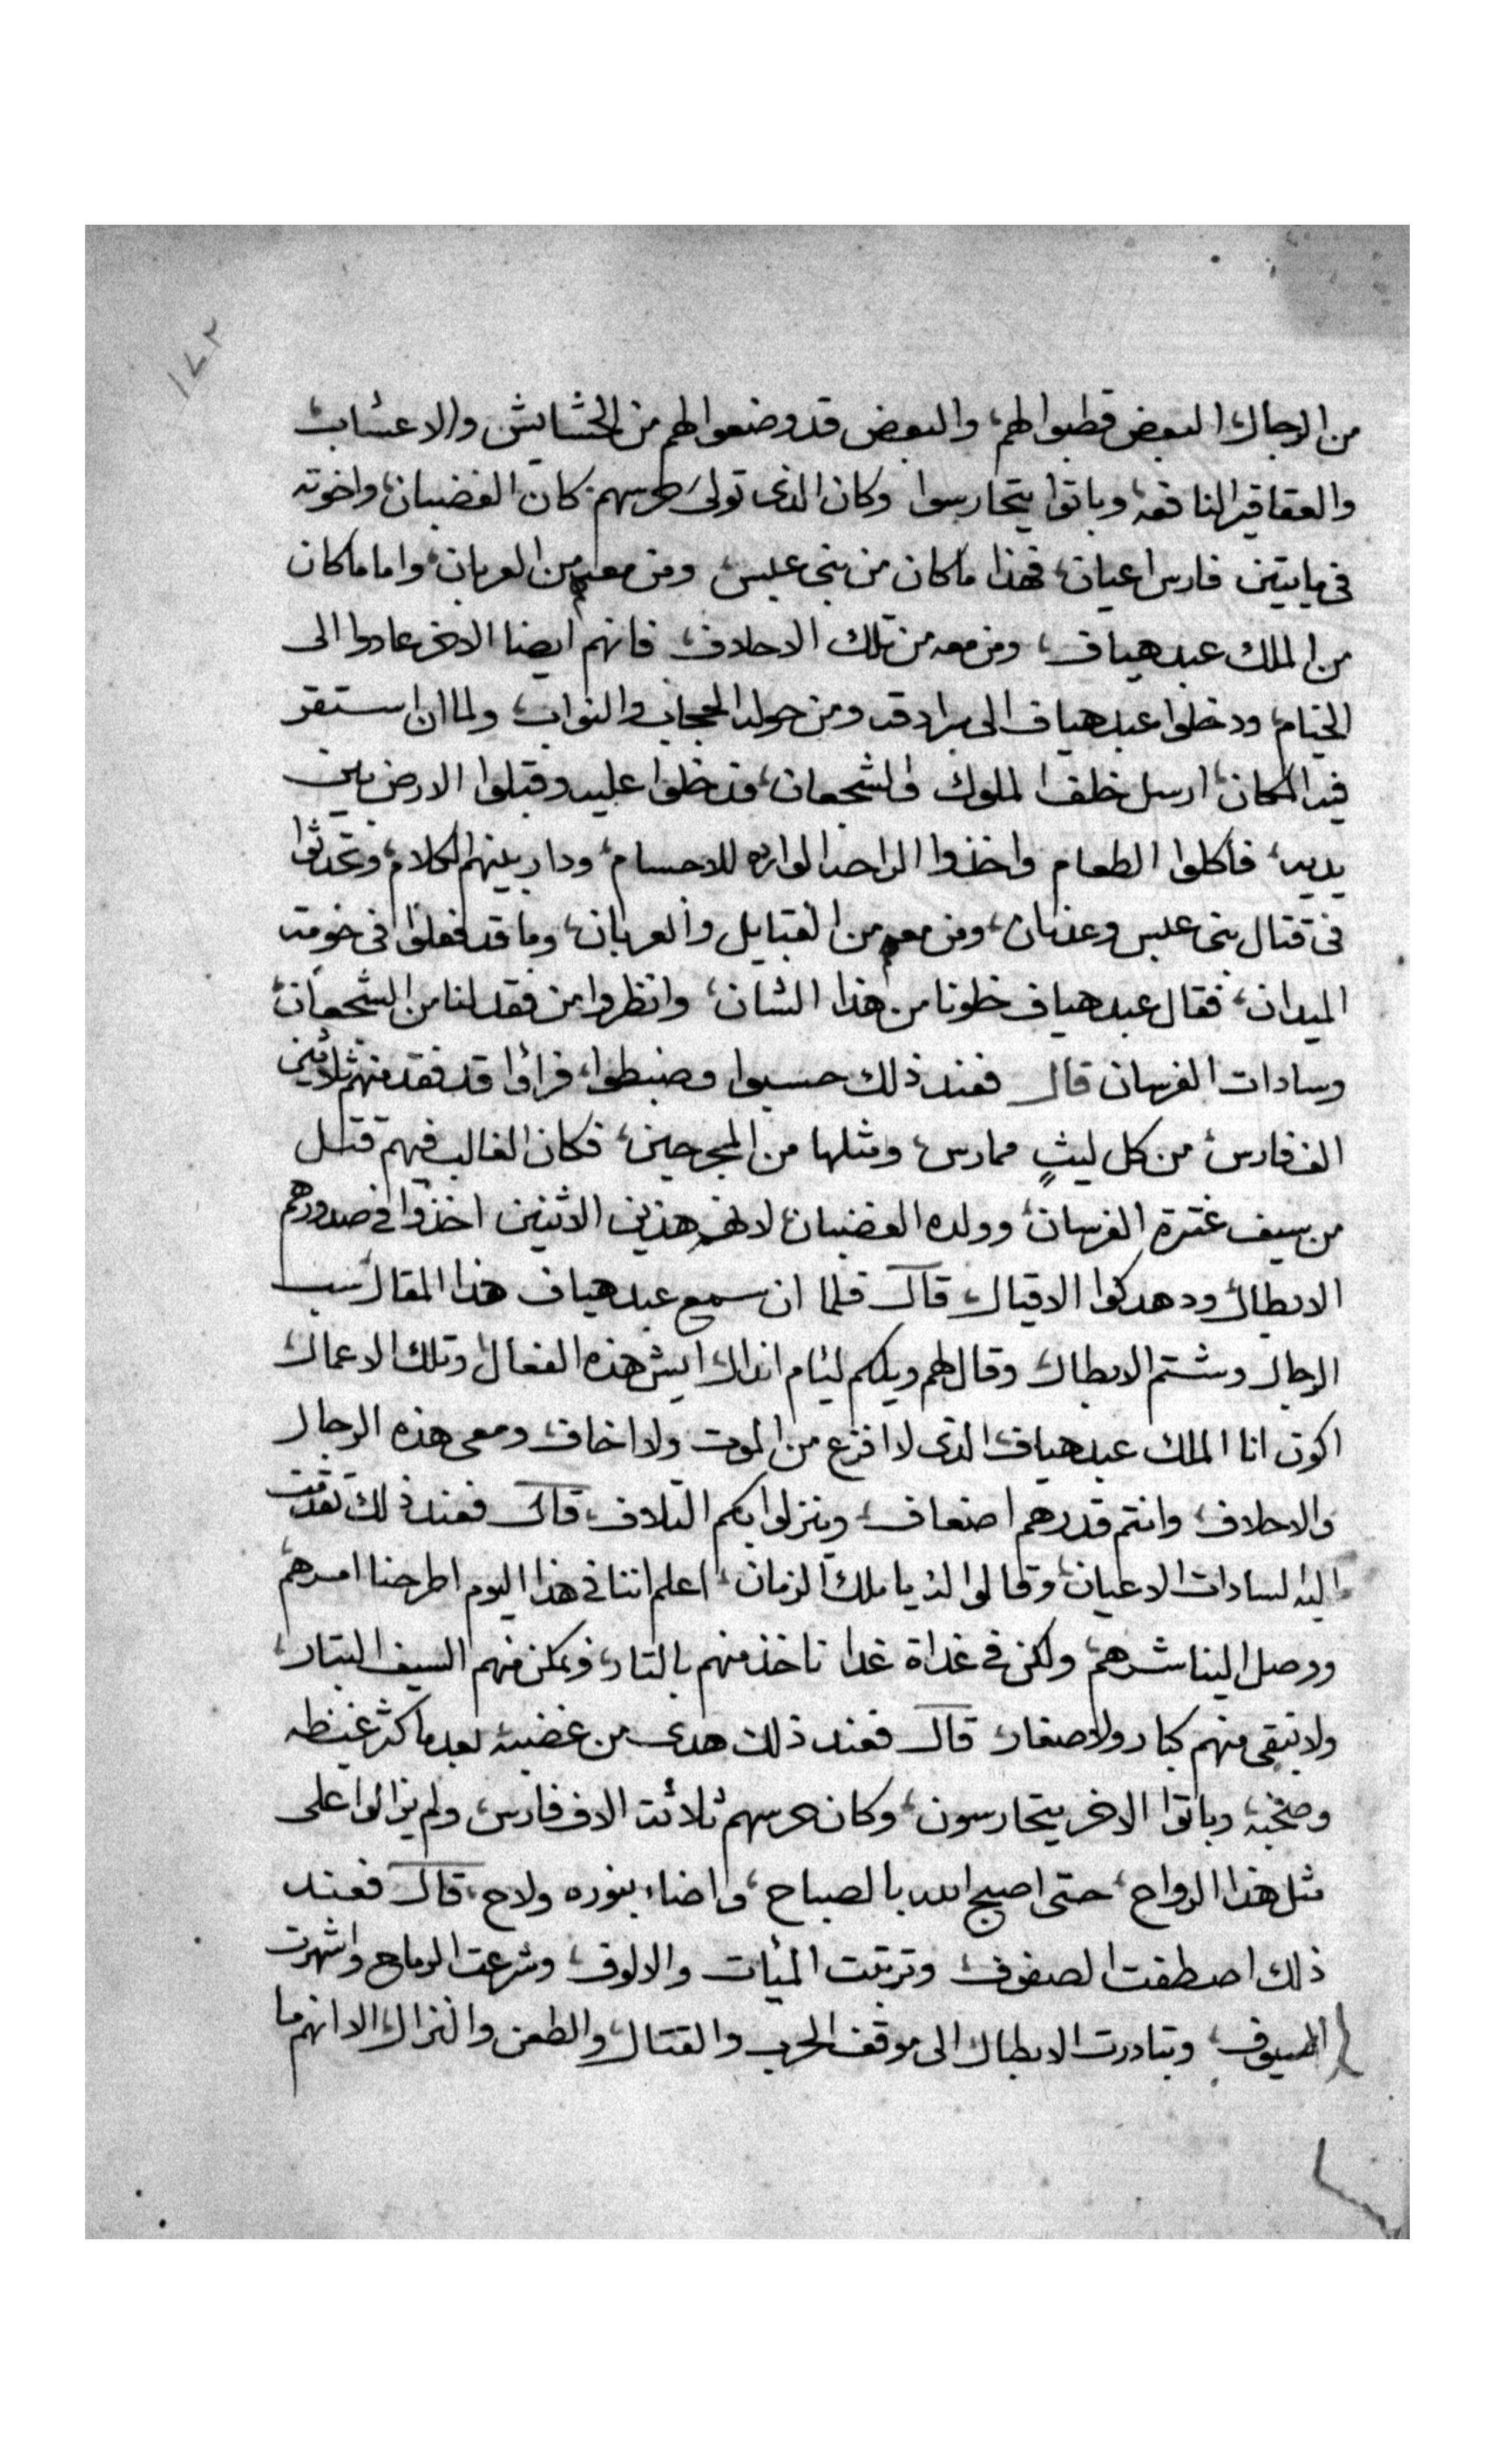 ١٧٢
من الرجال، البعض قطبوا لهم، والبعض قد وضعوا لهم من الحشايش والاعشاب،
والعقاقير النافعه، وباتوا يتحارسوا وكان الذى تولى حرسهم كان الغضبان، واخوته
فى مايتين فارس اعيان، فهذا ما كان من بنى عبس، ومن معهم من العربان، واما ما كان
من الملك عبد هياف، ومن معه من تلك الاحلاف، فانهم ايضا الاخر عادوا الى
الخيام، ودخلوا عبد هياف الى سرادقه ومن حوله الحجاب والنواب، ولما ان استقر
فيه المكان، ارسل خلف الملوك والشجعان، فدخلوا عليه وقبلوا الارض بين
يديه، فاكلوا الطعام واخذوا الراحه الوارده للاجسام، ودار بينهم الكلام، وتحدثوا
فى قتال بنى عبس وعدنان، ومن معهم من القبايل والعربان، وما قد فعلوا فى حومة
الميدان، فقال عبد هياف خلونا من هذا الشان، وانظروا من فقد لنا من الشجعان،
وسادات الفرسان قال فعند ذلك حسبوا وضبطوا، فراوا قد فقد منهم ثلاثين
الف فارس، من كل ليثٍ ممارس، ومثلها من المجرحين، فكان الغالب فيهم قتل
من سيف عنترة الفرسان، وولده الغضبان، لان هذين الاثنين اخذوا فى صدورهم
الابطال، ودهدكوا الاقيال، قال فلما ان سمع عبد هياف هذا المقال، سب
الرجال وشتم الابطال، وقال لهم ويلكم ليئام انذال، ايش هذه الفعال، وتلك الاعمال،
اكون انا الملك عبد هياف، الذى لا افزع من الموت ولا اخاف، ومعى هذه الرجال
والاحلاف، وانتم قدرهم اضعاف، وينزلوا بكم التلاف، قال فعند ذلك تقدمت
اليه السادات الاعيان، وقالوا له يا ملك الزمان، اعلم اننا فى هذا اليوم اطرحنا امرهم
ووصل الينا شرهم، ولكن فى غداة غدا ناخذ منهم بالتار، ونمكن منهم السيف البتار،
ولا نبقى منهم كبار ولا صغار، قال فعند ذلك هدى من غضبه، بعد ما كثر غيظه
وصخبه، وباتوا الاخر يتحارسون، وكان حرسهم ثلاثت الاف فارس، ولم يزالوا على
مثل هذا الرواح، حتى اصبح الله بالصباح، واضاء بنوره ولاح، قال فعند
ذلك اصطفت الصفوف، وترتبت الميئات والالوف، وشرعت الرماح واشهرت
السيوف، وتبادرت الابطال الى موقف الحرب والقتال، والطعن والنزال، الا انهم ما